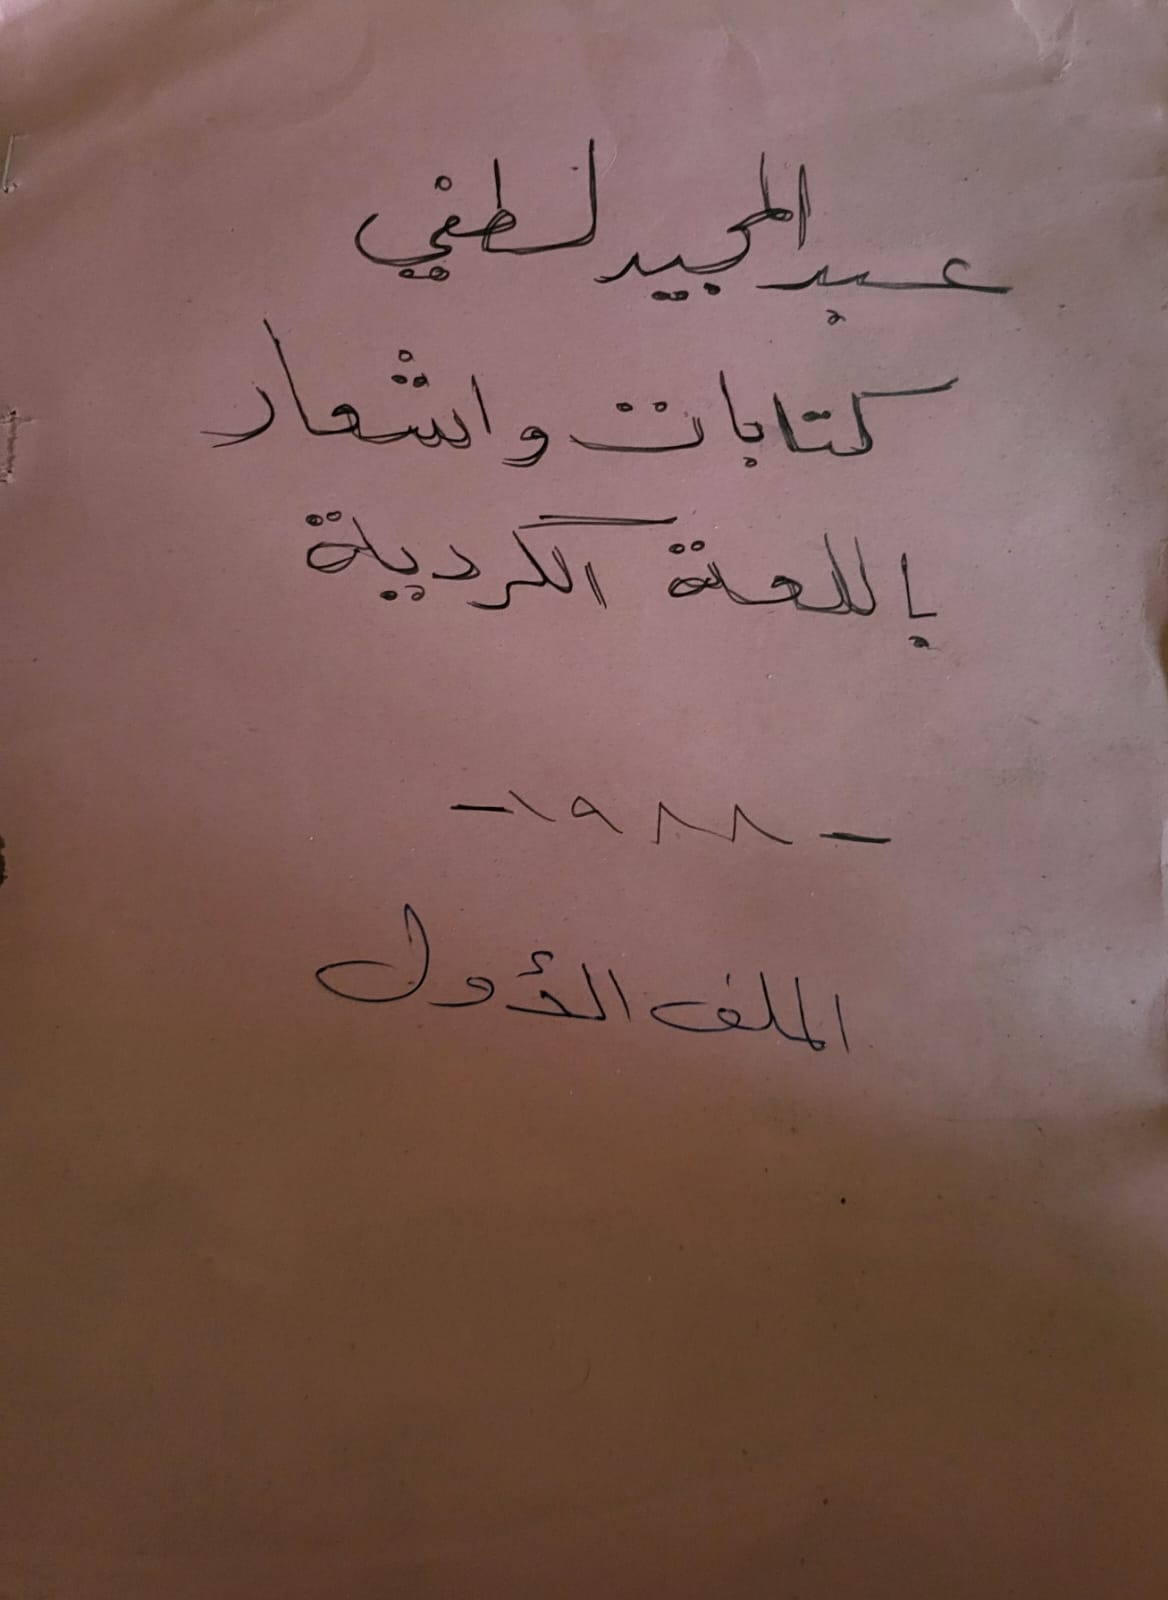 عبد المجيد لطفي
كتابات واشعار
باللغة الكردية
- ١٩٨٨ -
الملف الأول